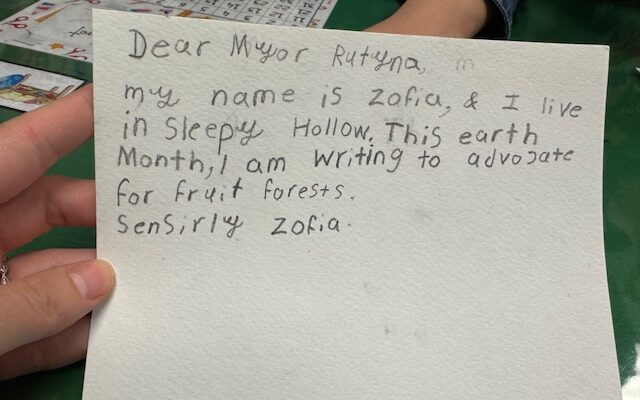 Dear Myor Rutyna, m
my name is Zofia, & I live
in Sleepy Hollow. This earth
Month, I am writing to advocate
for fruit forests.
Sensirly Zofia.